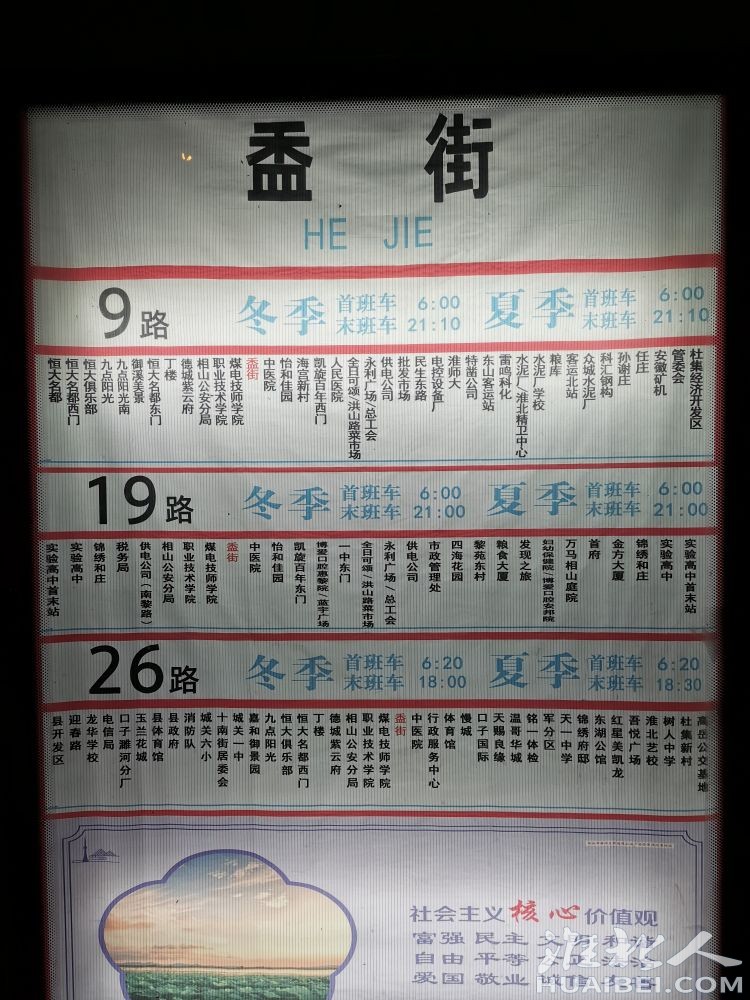 盉 街
HE JIE
9路 冬季 首班车 6:00 末班车 21:10 夏季 首班车 6:00 末班车 21:10
恒大名都
恒大名都西门
恒大俱乐部
九点阳光
九点阳光南
御溪美景
恒大名都东门
丁楼
德城紫云府
相山公安分局
职业技术学院
煤电技师学院
盉街
中医院
怡和佳园
海宫新村
凯旋百年西门
人民医院
全日可颂/洪山路菜市场
永利广场/总工会
供电公司
批发市场
民生东路
电控设备厂
淮师大
特凿公司
东山客运站
雷鸣科化
水泥厂/淮北精卫中心
水泥厂学校
粮库
客运北站
众城水泥厂
科汇钢构
孙谢庄
任庄
安徽矿机
管委会
杜集经济开发区
19路 冬季 首班车 6:00 末班车 21:00 夏季 首班车 6:00 末班车 21:00
实验高中首末站
实验高中
锦绣和庄
税务局
供电公司(南黎路)
相山公安分局
职业技术学院
煤电技师学院
盉街
中医院
怡和佳园
凯旋百年东门
博爱口腔惠黎院/蓝宇广场
一中东门
全日可颂/洪山路菜市场
永利广场/总工会
供电公司
市政管理处
四海花园
黎苑东村
粮食大厦
发现之旅
妇幼保健院/博爱口腔安邦院
万马相山庭院
首府
金方大厦
锦绣和庄
实验高中
实验高中首末站
26路 冬季 首班车 6:20 末班车 18:00 夏季 首班车 6:20 末班车 18:30
县开发区
迎春路
龙华学校
电信局
口子濉河分厂
玉兰花城
县体育馆
县政府
消防队
城关六小
十南街居委会
城关一中
嘉和御景园
九点阳光
恒大俱乐部
恒大名都西门
丁楼
德城紫云府
相山公安分局
职业技术学院
煤电技师学院
盉街
中医院
行政服务中心
体育馆
慢城
口子国际
天赐良缘
温哥华城
铭一体检
军分区
天一中学
锦绣府邸
东湖公馆
红星美凯龙
吾悦广场
淮北艺校
树人中学
杜集新村
高岳公交基地
社会主义核心价值观
富强 民主 文明 和谐
自由 平等 公正 法治
爱国 敬业 诚信 友善
淮北人
HUAIBEI.COM